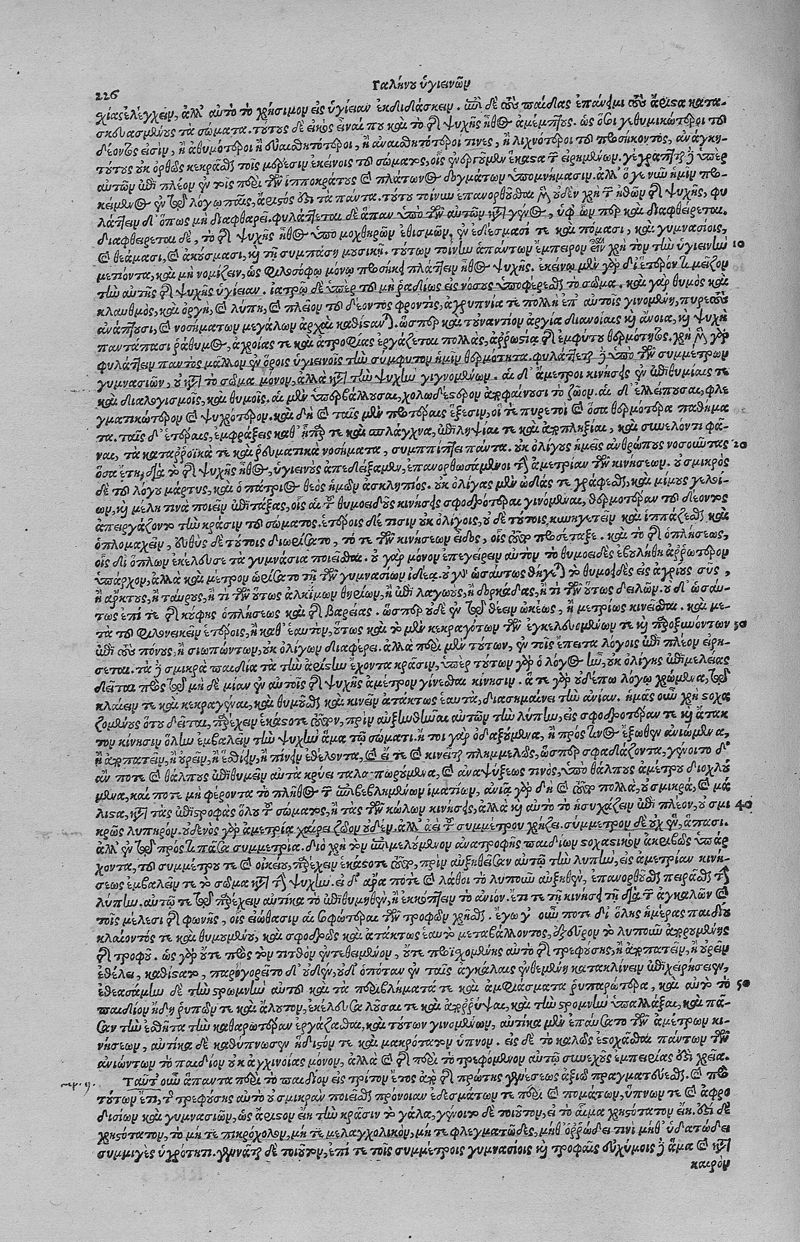 226
Γαληνοῦ ὑγιεινῶν
χίας ἐλέγχειν, ἀλλ' αὐτὸ τὸ χρήσιμον εἰς ὑγίειαν ἐκδιδάσκειν. ἐπὶ δὲ τοὺς παῖδας ἐπάνειμι τοὺς ἄριστα κατα-
σκευασμένους τὰ σώματα. τούτους δὲ εἰκὸς εἶναί που καὶ τὸ τῆς ψυχῆς ἦθος ἀμέμπτους. ὡς ὅσοι γε θυμικώτεροι τοῦ
δέοντός εἰσιν, ἢ ἀθυμότεροι ἢ ἀναισθητότεροί τινες, ἢ λιχνότεροι τοῦ προσήκοντος, ἀνάγκη
τούτους οὐκ ὀρθῶς κεκρᾶσθαι τοῖς μορίοις ἐκείνοις τοῦ σώματος, οἷς ἐνεργοῦμεν ἕκαστα τῶν εἰρημένων. γέγραπται δὲ ὑπὲρ
αὐτῶν ἐπὶ πλέον ἐν τοῖς περὶ τῶν ἱπποκράτους καὶ πλάτωνος δογμάτων ὑπομνήμασιν. ἀλλ' ὅ γε νῦν ἡμῖν προ-
κείμενος ἐν τῷ λόγῳ παῖς, ἄριστός ἐστι τὰ πάντα. τοῦτο τοίνυν ἐπανορθοῦσθαι μὲν οὐδὲν χρὴ τῶν ἠθῶν τῆς ψυχῆς, φυ
λάττειν δ' ὅπως μὴ διαφθαρεῖ. φυλάττεται δὲ ἅπαν ὑπὸ τῶν αὐτῶν κατὰ γένος, ὑφ' ὧν περ καὶ διαφθείρεται.
διαφθείρεται δὲ, τὸ τῆς ψυχῆς ἦθος ὑπὸ μοχθηρῶν ἐθισμῶν, ἐν ἐδέσμασί τε καὶ πόμασι, καὶ γυμνασίοις,
καὶ θεάμασι, καὶ ἀκούσμασι, καὶ τῇ συμπάσῃ μουσικῇ. τούτων τοίνυν ἁπάντων ἔμπειρον εἶναι χρὴ τὸν τὴν ὑγιεινὴν 10
μετιόντα, καὶ μὴ νομίζειν, ὡς φιλοσόφῳ μόνῳ προσήκει πλάττειν ἦθος ψυχῆς. ἐκείνῳ μὲν γὰρ δι' ἕτερόν τι μεῖζον
τὴν αὐτῆς τῆς ψυχῆς ὑγίειαν. ἰατρῷ δὲ ὑπὲρ τοῦ μὴ ῥᾳδίως εἰς νόσους ὑποφέρεσθαι τὸ σῶμα. καὶ γὰρ θυμὸς καὶ
κλαυθμὸς, καὶ ὀργὴ, καὶ λύπη, καὶ πλεῖον τοῦ δέοντος φροντὶς, ἀγρυπνία τε πολλὴ ἐπ' αὐτοῖς γινομένη, πυρετοὺς
ἀνάπτουσι, καὶ νοσημάτων μεγάλων ἀρχαὶ καθίστανται. ὥσπερ καὶ τοὐναντίον ἀργία διανοίας καὶ ἄνοια, καὶ ψυχὴ
παντάπασι ῥᾴθυμος, ἀχροίας τε καὶ ἀτροφίας ἐργάζεται πολλὰς, ἀρρωστίᾳ τῆς ἐμφύτου θερμότητος. χρὴ μὲν γὰρ
φυλάττειν παντὸς μᾶλλον ἐν ὅροις ὑγιεινοῖς τὴν σύμφυτον ἡμῖν θερμότητα. φυλάττεται δὲ ὑπὸ τῶν συμμέτρων
γυμνασίων, οὐ κατὰ τὸ σῶμα μόνον, ἀλλὰ κατὰ τὴν ψυχὴν γιγνομένων. αἱ δ' ἄμετροι κινήσεις ἐν ἐπιθυμίαις τε
καὶ διαλογισμοῖς, καὶ θυμοῖς. αἱ μὲν ὑπερβάλλουσαι, χολωδέστερον ἀποφαίνουσι τὸ ζῷον. αἱ δ' ἐλλείπουσαι, φλε
γματικώτερον καὶ ψυχρότερον. καὶ δὴ καὶ ταῖς μὲν προτέραις ἕξεσιν, οἵ τε πυρετοὶ καὶ ὅσα θερμότερα παθήμα
τα. ταῖς δ' ἑτέραις, ἐμφράξεις καθ' ἧπάρ τε καὶ σπλάγχνα, ἐπιληψίαι τε καὶ ἀποπληξίαι, καὶ συνελόντι φά-
ναι, τὰ καταρροϊκά τε καὶ ῥευματικὰ νοσήματα, συμπίπτει πάντα. οὐκ ὀλίγους ἡμεῖς ἀνθρώπους νοσοῦντας 20
ὅσα ἔτη, διὰ τὸ τῆς ψυχῆς ἦθος, ὑγιεινοὺς ἀπεδείξαμεν, ἐπανορθωσάμενοι τὴν ἀμετρίαν τῶν κινήσεων. οὐ σμικρὸς
δὲ τοῦ λόγου μάρτυς, καὶ ὁ πάτριος θεὸς ἡμῶν ἀσκληπιός. οὐκ ὀλίγας μὲν ᾠδάς τε γράφεσθαι, καὶ μίμους γελοί-
ων, καὶ μέλη τινὰ ποιεῖν ἐπιτάξας, οἷς αἱ τοῦ θυμοειδοῦς κινήσεις σφοδρότεραι γινόμεναι, θερμοτέραν τοῦ δέοντος
ἀπειργάζοντο τὴν κρᾶσιν τοῦ σώματος. ἑτέροις δέ τισιν οὐκ ὀλίγοις, οὐδὲ τούτοις, κυνηγετεῖν καὶ ἱππάζεσθαι καὶ
ὁπλομαχεῖν, εὐθὺς δὲ τούτοις διωρίσατο, τό τε τῶν κινήσεων εἶδος, οἷς τοῦτο προσέταξε. καὶ τὸ τῆς ὁπλίσεως,
οἷς δι' ὅπλων ἐκέλευσε τὰ γυμνάσια ποιεῖσθαι. οὐ γὰρ μόνον ἐπεγείρειν αὐτῶν τὸ θυμοειδὲς ἐβουλήθη ἀρρωστότερον
ὑπάρχον, ἀλλὰ καὶ μέτρον ὡρίσατο τῇ τῶν γυμνασίων ἰδέᾳ. οὐ γὰρ ὡσαύτως θήγεται τὸ θυμοειδὲς εἰς ἀγρίους σῦς,
ἢ ἄρκτους, ἢ ταύρους, ἤ τι τῶν οὕτως ἀλκίμων θηρίων, ἢ ἐπὶ λαγωοὺς, ἢ δορκάδας, ἤ τι τῶν οὕτως δειλῶν. οὐδ' ὡσαύ-
τως ἐπί τε τῆς κούφης ὁπλίσεως καὶ τῆς βαρείας. ὥσπερ οὐδὲ ἐν τῷ θέειν ὠκέως, ἢ μετρίως κινεῖσθαι. καὶ με-
τὰ τοῦ φιλονεικεῖν ἑτέροις, ἢ καθ' ἑαυτὸν, οὕτως καὶ τὸ μὲν κεκραγότων τῶν ἐγκελευομένων τε καὶ παροξυνόντων 30
ἐπὶ τοὺς πόνους, ἢ σιωπώντων, οὐκ ὀλίγῳ διαφέρει. ἀλλὰ περὶ μὲν τούτων, ἐν τοῖς ἔπειτα λόγοις ἐπὶ πλέον εἰρή-
σεται. τὰ δὲ σμικρὰ παιδία τὰ τὴν ἀρίστην ἔχοντα κρᾶσιν, ὑπὲρ τούτων γὰρ ὁ λόγος ἦν, οὐκ ὀλίγης ἐπιμελείας
δεῖται πρὸς τῷ μηδεμίαν ἐν αὐτοῖς τῆς ψυχῆς ἄμετρον γίνεσθαι κίνησιν. ἅτε γὰρ οὐδέπω λόγῳ χρώμενα, τῷ
κλαίειν τε καὶ κεκραγέναι, καὶ θυμοῦσθαι καὶ κινεῖν ἀτάκτως ἑαυτὰ, διασημαίνει τὴν ἀνίαν. ἡμᾶς οὖν χρὴ στοχα
ζομένους ὅτου δεῖται, παρέχειν ἑκάστοτε τοῦτο, πρὶν αὐξηθεῖσαν αὐτῶν τὴν λύπην, εἰς σφοδροτέραν τε καὶ ἄτακ
τον κίνησιν ὅλην ἐμβαλεῖν τὴν ψυχὴν ἅμα τῷ σώματι. ἤτοι γὰρ ὀδαξόμενα, ἢ πρός τινος ἔξωθεν ἀνιώμενα,
ἢ ἀποπατεῖν, ἢ οὐρεῖν, ἢ ἐσθίειν, ἢ πίνειν ἐθέλοντα, καὶ εἴ τε καὶ κινεῖται πλημμελῶς, ὥσπερ σφαδάζοντα, γένοιτο δ'
ἄν ποτε καὶ θάλπους ἐπιθυμεῖν αὐτὰ κρύει ταλαιπωρούμενα, καὶ ἀναψύξεως τινὸς, ὑπὸ θάλπους ἀμέτρου διοχλού
μενα, καί ποτε μὴ φέροντα τὸ πλῆθος τῶν ἐπιβεβλημένων ἱματίων, ἀνιᾷ γὰρ δὴ καὶ τοῦτο πολλὰ, οὐ σμικρὰ, καὶ μά
λιστα, κατὰ τὰς ἐπιστροφὰς ὅλου τοῦ σώματος, ἢ τὰς τῶν κώλων κινήσεις, ἀλλὰ καὶ αὐτὸ τὸ ἡσυχάζειν ἐπὶ πλέον, οὐ σμι 40
κρῶς λυπηρόν. οὐδενὸς γὰρ ἀμετρίᾳ χαίρει ζῷον οὐδὲν, ἀλλ' ἀεὶ τοῦ συμμέτρου χρῄζει. σύμμετρον δὲ οὐχ ἓν, ἅπασι.
ἀλλ' ἐν τῷ πρός τι πᾶσα συμμετρία. διὸ χρὴ τὸν ἐπιμελούμενον ἀνατροφῆς παιδίων στοχαστικὸν ἀκριβῶς ὑπάρ
χοντα, τοῦ συμμέτρου τε καὶ οἰκείου, παρέχειν ἑκάστοτε τοῦτο, πρὶν αὐξηθεῖσαν αὐτῷ τὴν λύπην, εἰς ἀμετρίαν κινή-
σεως ἐμβαλεῖν τε τὸ σῶμα καὶ τὴν ψυχήν. εἰ δ' ἄρα ποτὲ καὶ λάθοι τὸ λυποῦν αὐξηθὲν, ἐπανορθοῦσθαι πειρᾶσθαι τὴν
λύπην. αὐτῷ τε τῷ παρέχειν αὐτίκα τὸ ἐπιθυμηθὲν, ἢ ἐκκόπτειν τὸ ἀνιόν. ἔτι τε τῇ κινήσει τῇ διὰ τῶν ἀγκαλῶν καὶ
τοῖς μέλεσι τῆς φωνῆς, οἷς εἰώθασιν αἱ σοφώτεραι τῶν τροφῶν χρῆσθαι. ἐγὼ γ' οὖν ποτε δι' ὅλης ἡμέρας παιδίου
κλαίοντός τε καὶ θυμουμένου, καὶ σφοδρῶς καὶ ἀτάκτως ἑαυτὸ μεταβάλλοντος, ἐξεῦρον τὸ λυποῦν ἀπορουμένης
τῆς τροφοῦ. ὡς γὰρ οὔτε πρὸς τὸν τιτθὸν ἐντεθειμένου, οὔτε προϊσχομένης αὐτὸ τῆς τρεφούσης, ἢ ἀποπατεῖν, ἢ οὐρεῖν
ἐθέλει, καθίστατο, παρηγορεῖτο δ' οὐδὲν, οὐδ' ὁπόταν ἐν ταῖς ἀγκάλαις ἐνθεμένη κατακλίνειν ἐπιχειρήσειεν,
ἐθεασάμην δὲ τὴν στρωμνὴν αὐτοῦ καὶ τὰ περιβλήματά τε καὶ ἀμφιάσματα ῥυπαρώτερα, καὶ αὐτὸ τὸ 50
παιδίον ἤδη ῥυπῶν τε καὶ ἄλουτον, ἐκέλευσα λοῦσαί τε καὶ ἀπορρύψαι, καὶ τὴν στρωμνὴν ὑπαλλάξαι, καὶ πᾶ-
σαν τὴν ἐσθῆτα τὴν καθαρωτέραν ἐργάζεσθαι, καὶ τούτων γινομένων, αὐτίκα μὲν ἐπαύσατο τῶν ἀμέτρων κι-
νήσεων, αὐτίκα δὲ καθύπνωσεν ἥδιστόν τε καὶ μακρότατον ὕπνον. εἰς δὲ τὸ καλῶς ἐστοχάσθαι πάντων τῶν
ἀνιώντων τὸ παιδίον οὐκ ἀγχινοίας μόνον, ἀλλὰ καὶ τῆς περὶ τὸ τρεφόμενον αὐτῷ συνεχοῦς ἐμπειρίας ἐστὶ χρεία.
Ταῦτ' οὖν ἅπαντα περὶ τὸ παιδίον εἰς τρίτον ἔτος ἀπὸ τῆς πρώτης γενέσεως ἀξιῶ πραγματεύεσθαι. καὶ πρὸ
τούτων ἔτι, τῆς τρεφούσης αὐτὸ οὐ σμικρὰν ποιεῖσθαι πρόνοιαν ἐδεσμάτων τε περὶ καὶ πομάτων, ὕπνων τε καὶ ἀφρο
δισίων καὶ γυμνασιῶν, ὡς ἄριστον εἴη τὴν κρᾶσιν τὸ γάλα, γένοιτο δὲ τοιοῦτον, εἰ τὸ αἷμα χρηστότατον εἴη. ἔστι δὲ
χρηστότατον, τὸ μήτε πικρόχολον, μήτε μελαγχολικὸν, μήτε φλεγματῶδες, μήθ' ὀρρώδει τινὶ μήθ' ὑδατώδει
συμμιγὲς ὑγρότητι. γεννᾶται δὲ τοιοῦτον, ἐπί τε τοῖς συμμέτροις γυμνασίοις καὶ τροφαῖς εὐχύμοις τε ἅμα καὶ κατὰ
καιρὸν